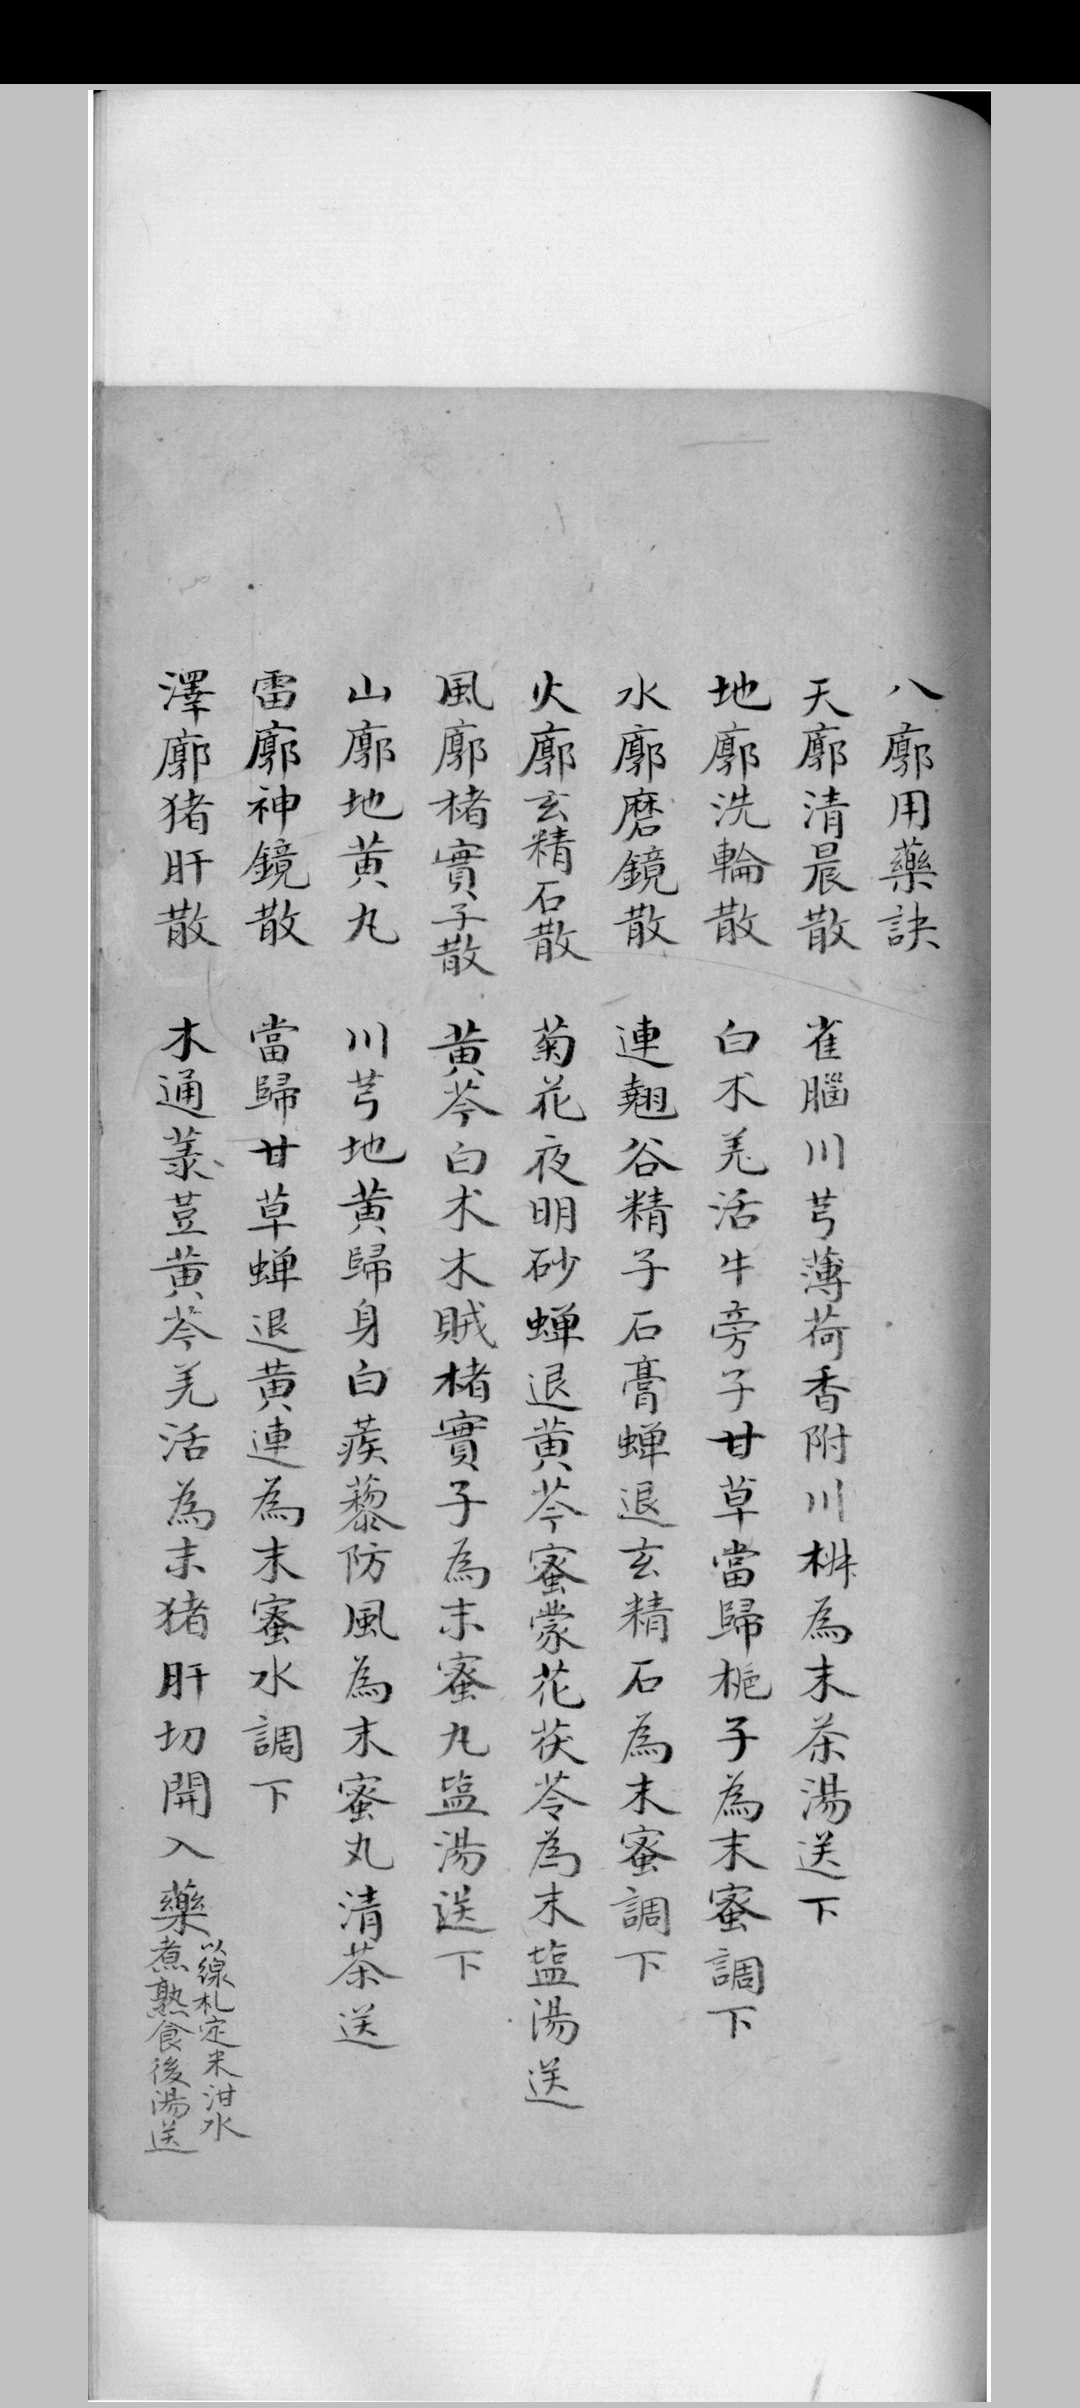 八廓用藥訣
天廓清晨散 雀腦川芎薄荷香附川椒為末茶湯送下
地廓洗輪散 白朮羌活牛旁子甘草當歸梔子為末蜜調下
水廓磨鏡散 連翹谷精子石膏蝉退玄精石為末蜜調下
火廓玄精石散 菊花夜明砂蝉退黄芩蜜蒙花茯苓為末塩湯送
風廓楮實子散 黄芩白朮木賊楮實子為末蜜丸塩湯送下
山廓地黄丸 川芎地黄歸身白蒺藜防風為末蜜丸清茶送
雷廓神鏡散 當歸甘草蝉退黄連為末蜜水調下
澤廓猪肝散 木通菉荳黄芩羌活為末猪肝切開入藥
以線札定米泔水
煮熟食後湯送